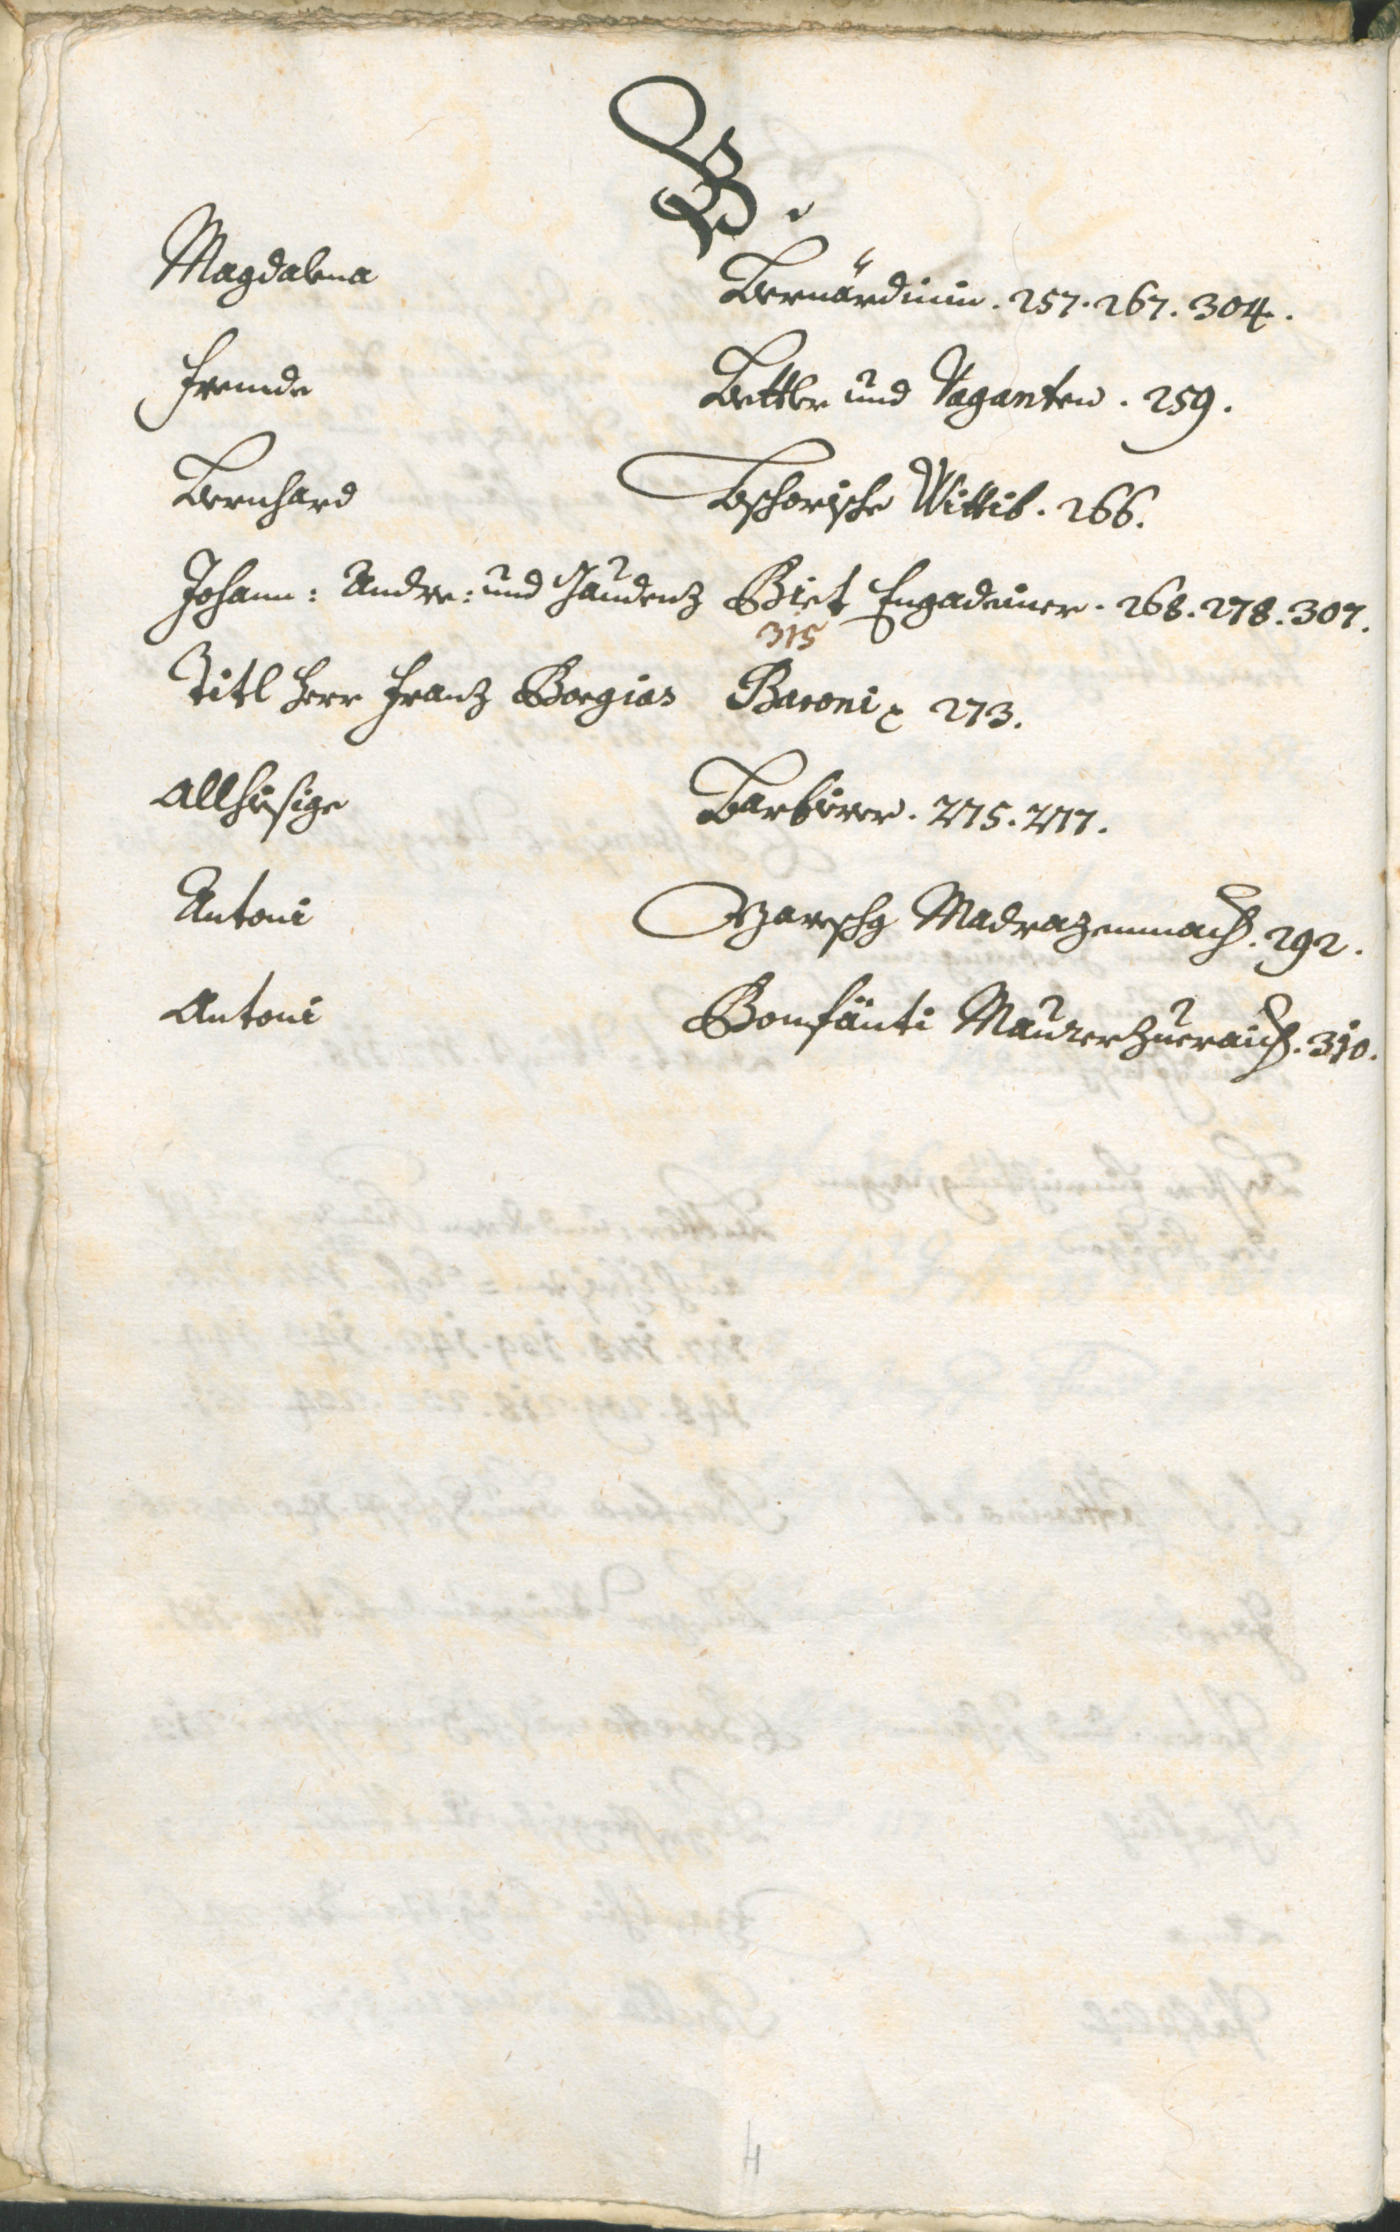 B.
Magdalena Bernärdinin. 257. 267. 304.
Fremde Bettler und Vaganten. 259.
Bernhard Wittib. 266.
Johann: Andre: und Gaudenz Biet Engadeiner. 268. 278. 307.
315
Titl Herr Franz Borgias Baroni 273.
Allhiesige Barbierer. 275. 277.
Antoni Madrazenmach. 292.
Antoni Bonfänti 310.
4